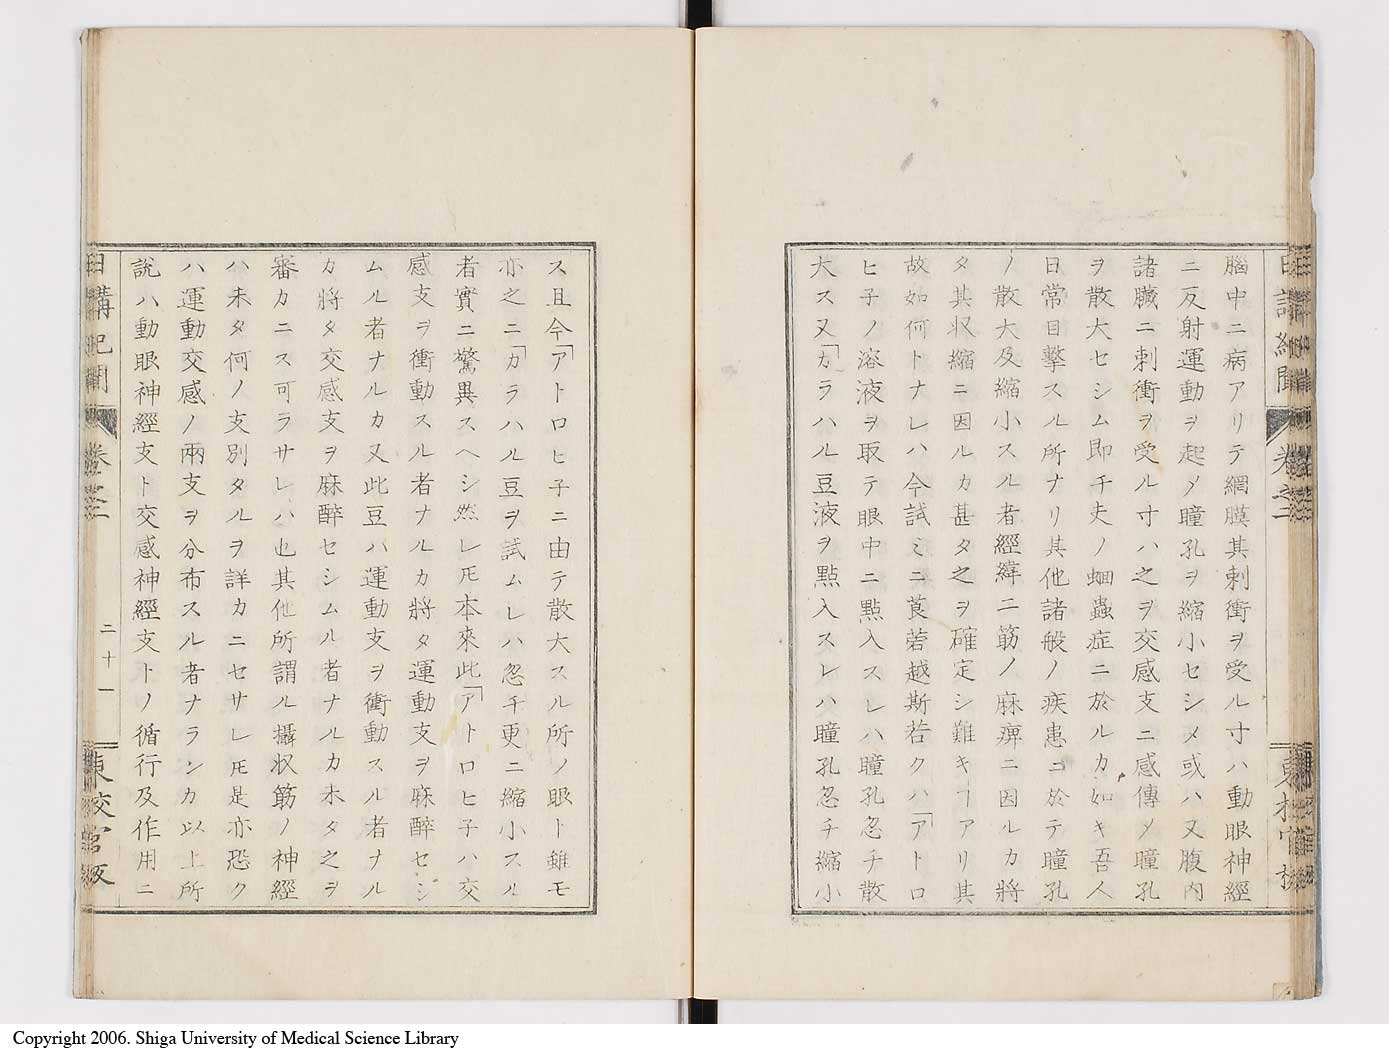 腦中ニ病アリテ網膜其刺衝ヲ受ル寸ハ動眼神經
ニ反射運動ヲ起メ瞳孔ヲ縮小セシメ或ハ又腹内
諸臟ニ刺衝ヲ受ル寸ハ之ヲ交感支ニ感傳メ瞳孔
ヲ散大セシム即チ夫ノ蛔蟲症ニ於ルカ如キ吾人
日常目擊スル所ナリ其他諸般ノ疾患ニ於テ瞳孔
ノ散大及縮小スル者經緯二筋ノ麻痺ニ因ルカ將
タ其収縮ニ因ルカ甚タ之ヲ確定シ難キヿアリ其
故如何トナレハ今試ミニ莨菪越斯若クハ「アトロ
ヒ子ノ溶液ヲ取テ眼中ニ點入スレハ瞳孔忽チ散
大ス又「カラハル豆液ヲ點入スレハ瞳孔忽チ縮小
卷之二
ス且今「アトロヒ子ニ由テ散大スル所ノ眼ト雖モ
亦之ニ「カラハル豆ヲ試ムレハ忽チ更ニ縮小スル
者實ニ驚異スヘシ然レ𪜈本來此「アトロヒ子ハ交
感支ヲ衝動スル者ナルカ將タ運動支ヲ麻醉セシ
ムル者ナルカ又此豆ハ運動支ヲ衝動スル者ナル
カ將タ交感支ヲ麻醉セシムル者ナルカ未タ之ヲ
審カニス可ラサレハ也其他所謂ル攝収筋ノ神經
ハ未タ何ノ支別タルヲ詳カニセサレ𪜈是亦恐ク
ハ運動交感ノ兩支ヲ分布スル者ナランカ以上所
說ハ動眼神經支ト交感神經支トノ循行及作用ニ
日講記聞 卷之二 二十一 東校官版
Copyright 2006. Shiga University of Medical Science Library